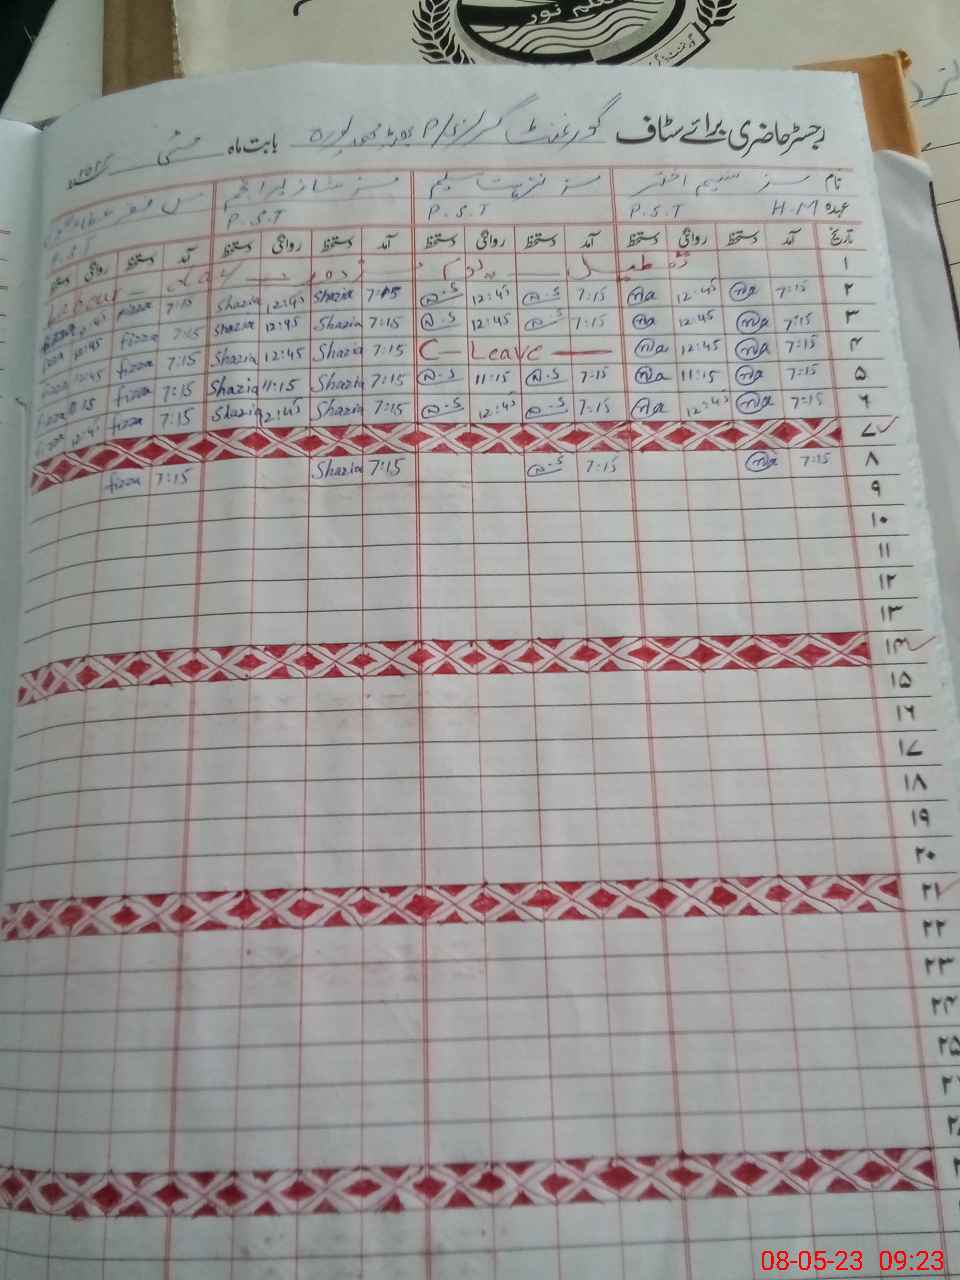 علم نور
رجسٹر حاضری برائے سٹاف گورنمنٹ گرلز P/S بابت ماہ مئی
نام مسز نسیم اختر مسز نزہت سلیم
عہدہ H.M P.S.T P.S.T P.S.T P.S.T
تاریخ آمد دستخط روانگی دستخط آمد دستخط روانگی دستخط آمد دستخط روانگی دستخط آمد دستخط روانگی دستخط
۱ تعطیل Labour Day
۲ 7:15 12:45 7:15 12:45 7:15 Shazia 12:45 Shazia 7:15 fizza 12:45
۳ 7:15 12:45 7:15 12:45 7:15 Shazia 12:45 Shazia 7:15 fizza 12:45 fizza
۴ 7:15 12:45 C- Leave 7:15 Shazia 12:45 Shazia 7:15 fizza 12:45 fizza
۵ 7:15 11:15 7:15 11:15 7:15 Shazia 11:15 Shazia 7:15 fizza 11:15 fizza
۶ 7:15 12:45 7:15 12:45 7:15 Shazia 12:45 Shazia 7:15 fizza 12:45 fizza
۷
۸ 7:15 7:15 7:15 Shazia 7:15 fizza
۹
۱۰
۱۱
۱۲
۱۳
۱۴
۱۵
۱۶
۱۷
۱۸
۱۹
۲۰
۲۱
۲۲
۲۳
۲۴
۲۵
08-05-23 09:23